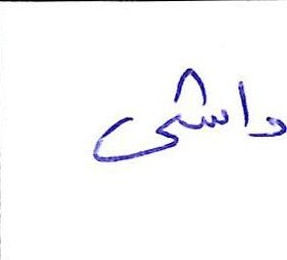 داشی